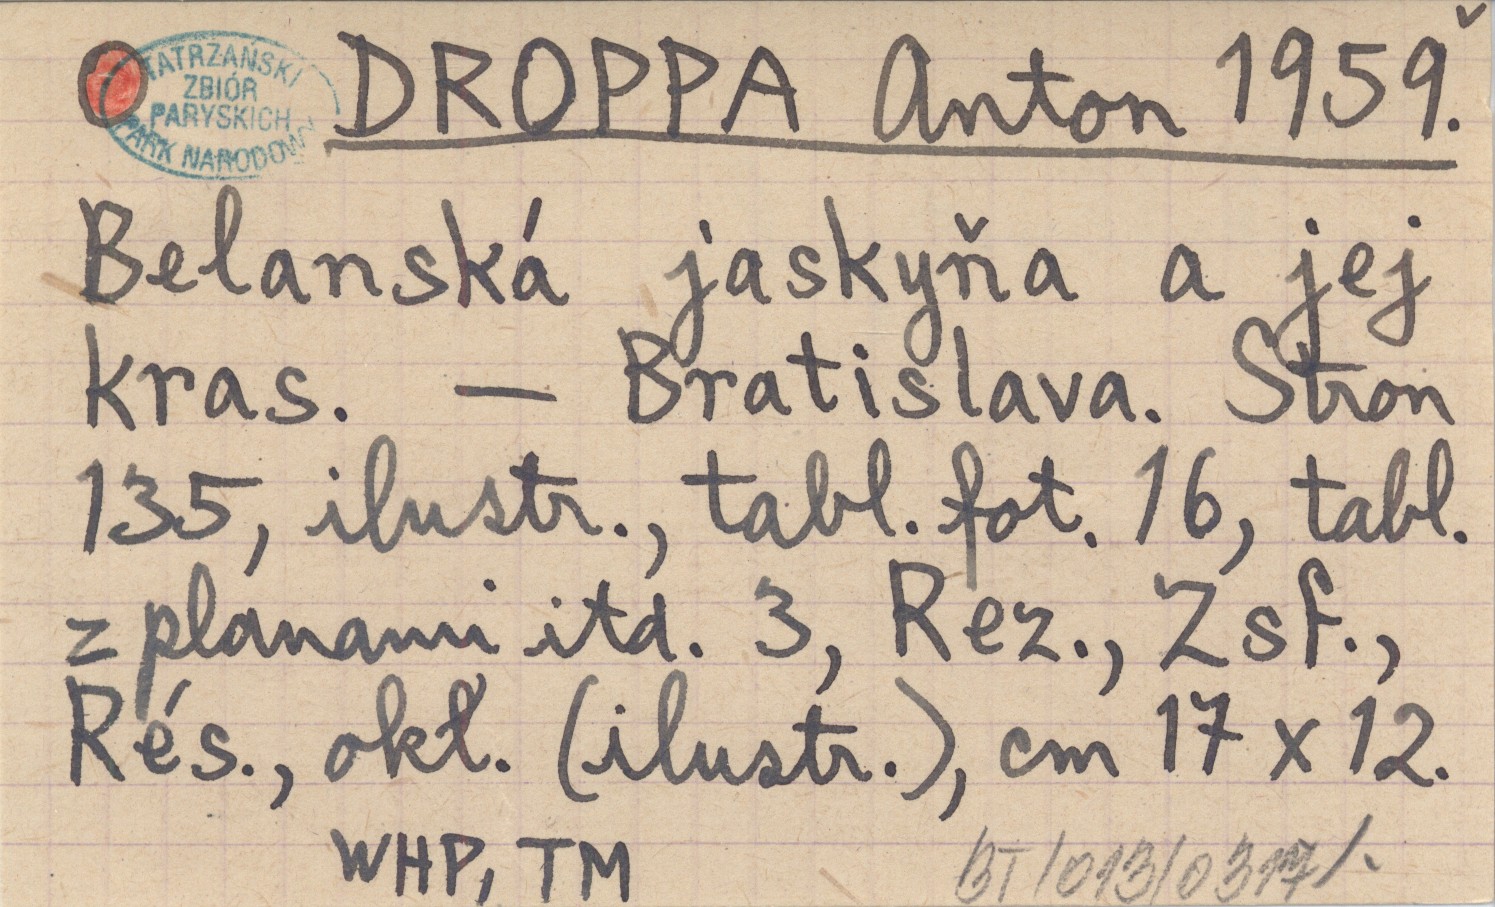 TATRZAŃSKI
ZBIÓR
PARYSKICH
PARK NARODOWY
DROPPA Anton 1959.
Belanská jaskyňa a jej
kras. — Bratislava. Stron
135, ilustr., tabl. fot. 16, tabl.
z planami itd. 3, Rez., Zsf.,
Rés., okł. (ilustr.), cm 17 x 12.
WHP, TM
BT/013/0317/.